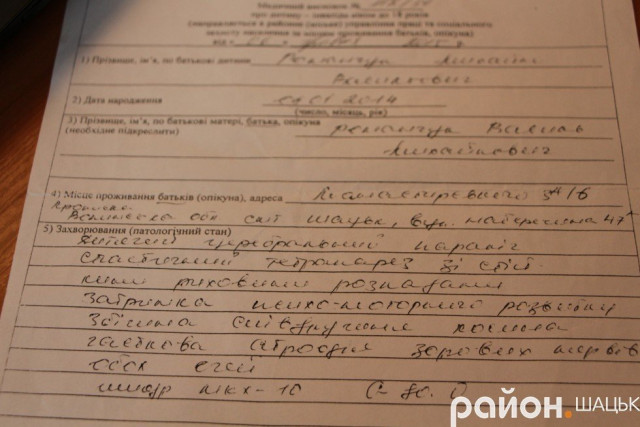 Медичний висновок №
про дитину – інваліда віком до 18 років
(направляється в районне (міське) управління праці та соціального
захисту населення за місцем проживання батьків, опікуна)
від
1) Прізвище, ім'я, по батькові дитини Романчук
Васильович
2) Дата народження 01 2014
(число, місяць, рік)
3) Прізвище, ім'я, по батькові матері, батька, опікуна Романчук Василь
(необхідне підкреслити) Михайлович
4) Місце проживання батьків (опікуна), адреса
Волинська обл смт Шацьк, вул. 47
5) Захворювання (патологічний стан)
Дитячий церебральний параліч
спастичний тетрапарез зі стій-
кими руховими розладами
Затримка психо-моторного розвитку
Збіжна співдружня косина
часткова атрофія зорових нервів
обох очей
шифр мкх-10 G-80.0
район.ШАЦЬК